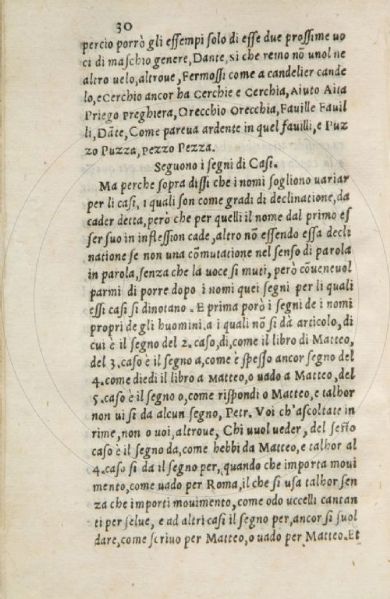 30
percio porrò gli essempi solo di esse due prossime uo
ci di maschio genere, Dante, si che remo nõ uuol ne
altro uelo, altroue, Fermossi come a candelier cande
lo, e Cerchio ancor ha Cerchie e Cerchia, Aiuto Aita
Priego preghiera, Orecchio Orecchia, Fauille Fauil
li, Dãte, Come pareua ardente in quel fauilli, e Puz
zo Puzza, pezzo Pezza.
Seguono i segni di Casi.
Ma perche sopra dissi che i nomi sogliono uariar
per li casi, i quali son come gradi di declinatione, da
cader detta, però che per quelli il nome dal primo es
ser suo in inflession cade, altro nõ essendo essa decli
natione se non una cõmutatione nel senso di parola
in parola, senza che la uoce si muti, però cõueneuol
parmi di porre dopo i nomi quei segni per li quali
essi casi si dinotano. E prima porò i segni de i nomi
propri de gli huomini. a i quali nõ si dà articolo, di
cui è il segno del 2. caso, di, come il libro di Matteo,
del 3. caso è il segno a, come è spesso ancor segno del
4. come diedi il libro a Matteo, o uado a Matteo, del
5. caso è il segno o, come rispondi o Matteo, e talhor
non ui si da alcun segno, Petr. Voi ch'ascoltate in
rime, non o uoi, altroue, Chi uuol ueder, del sesto
caso è il segno da, come hebbi da Matteo, e talhor al
4. caso si da il segno per, quando che importa moui
mento, come uado per Roma, il che si usa talhor sen
za che importi mouimento, come odo uccelli cantan
ti per selue, e ad altri casi il segno per, ancor si suol
dare, come scriuo per Matteo, o uado per Matteo. Et